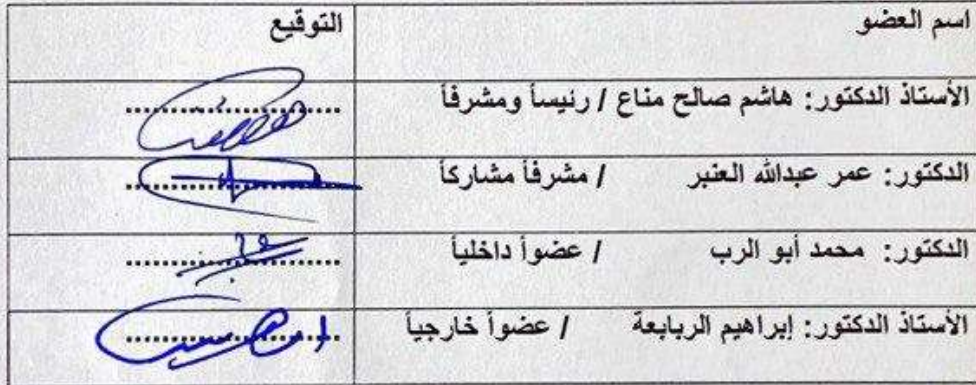 اسم العضو التوقيع
الأستاذ الدكتور: هاشم صالح مناع / رئيساً ومشرفاً ....................
الدكتور: عمر عبدالله العنبر / مشرفاً مشاركاً ....................
الدكتور: محمد أبو الرب / عضواً داخلياً ....................
الأستاذ الدكتور: إبراهيم الربابعة / عضواً خارجياً ....................